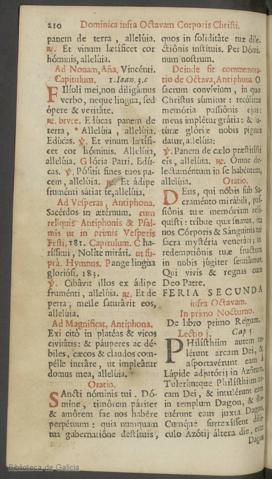 210 Dominica infra Octavam Corporis Christi.
panem de terra, allelúia.
℟. Et vinum lætíficet cor
hóminis, allelúia.
Ad Nonam, Aña, Vincénti.
Capitulum. 1. Ioan. 3. c
Filíoli mei, non diligámus
verbo, neque lingua, sed
ópere & veritáte.
℟. breve. Edúcas panem de
terra, * Allelúia, allelúia.
Edúcas. ℣. Et vinum lætífi-
cet cor hóminis. Allelúia,
allelúia. Glória Patri. Edú-
cas. ℣. Pósuit fines tuos pa-
cem, allelúia. ℟. Et ádipe
fruménti sátiat te, allelúia.
Ad Vesperas, Antiphona.
Sacérdos in ætérnum. cum
reliquis Antiphonis & Psal-
mis ut in primis Vesperis
Festi, 181. Capitulum. Cha-
ríssimi, Nolíte mirári. ut su-
prà. Hymnus. Pange lingua
gloriósi, 183.
℣. Cibávit illos ex ádipe
fruménti, allelúia. ℟. Et de
petra, melle saturávit eos,
allelúia.
Ad Magnificat, Antiphona.
Exi citò in platéas & vicos
civitátis: & páuperes ac dé-
biles, cæcos & claudos com-
pélle intráre, ut impleátur
domus mea, allelúia.
Oratio.
Sancti nóminis tui, Dó-
mine, timórem páriter
& amórem fac nos habére
perpétuum: quia nunquam
tua gubernatióne destítuis,
quos in soliditáte tuæ dile-
ctiónis instítuis. Per Dómi-
num nostrum.
Deinde fit commemora-
tio de Octava, Antiphona O
sacrum convívium, in quo
Christus súmitur: recólitur
memória passiónis ejus:
mens implétur grátia: & fu-
túræ glóriæ nobis pignus
datur, allelúia.
℣. Panem de cælo præstitísti
eis, allelúia. ℟. Omne de-
lectaméntum in se habéntem,
allelúia.
Oratio.
Deus, qui nobis sub Sa-
craménto mirábili, pas-
siónis tuæ memóriam re-
liquísti: tríbue quǽsumus, ita
nos Córporis & Sánguinis tui
sacra mystéria venerári; ut
redemptiónis tuæ fructum
in nobis júgiter sentiámus.
Qui vivis & regnas cum
Deo Patre.
FERIA SECUNDA
infra Octavam.
In primo Nocturno.
De libro primo Regum.
Lectio j. Cap. 5
Philísthiim autem tu-
lérunt arcam Dei, &
asportavérunt eam à
Lápide adjutórii in Azótum.
Tulerúntque Philísthiim ar-
cam Dei, & intulérunt eam
in templum Dagon, & sta-
tuérunt eam juxta Dagon.
Cumque surrexíssent dilú-
culo Azótii áltera die, ecce
Dagon
Biblioteca de Galicia